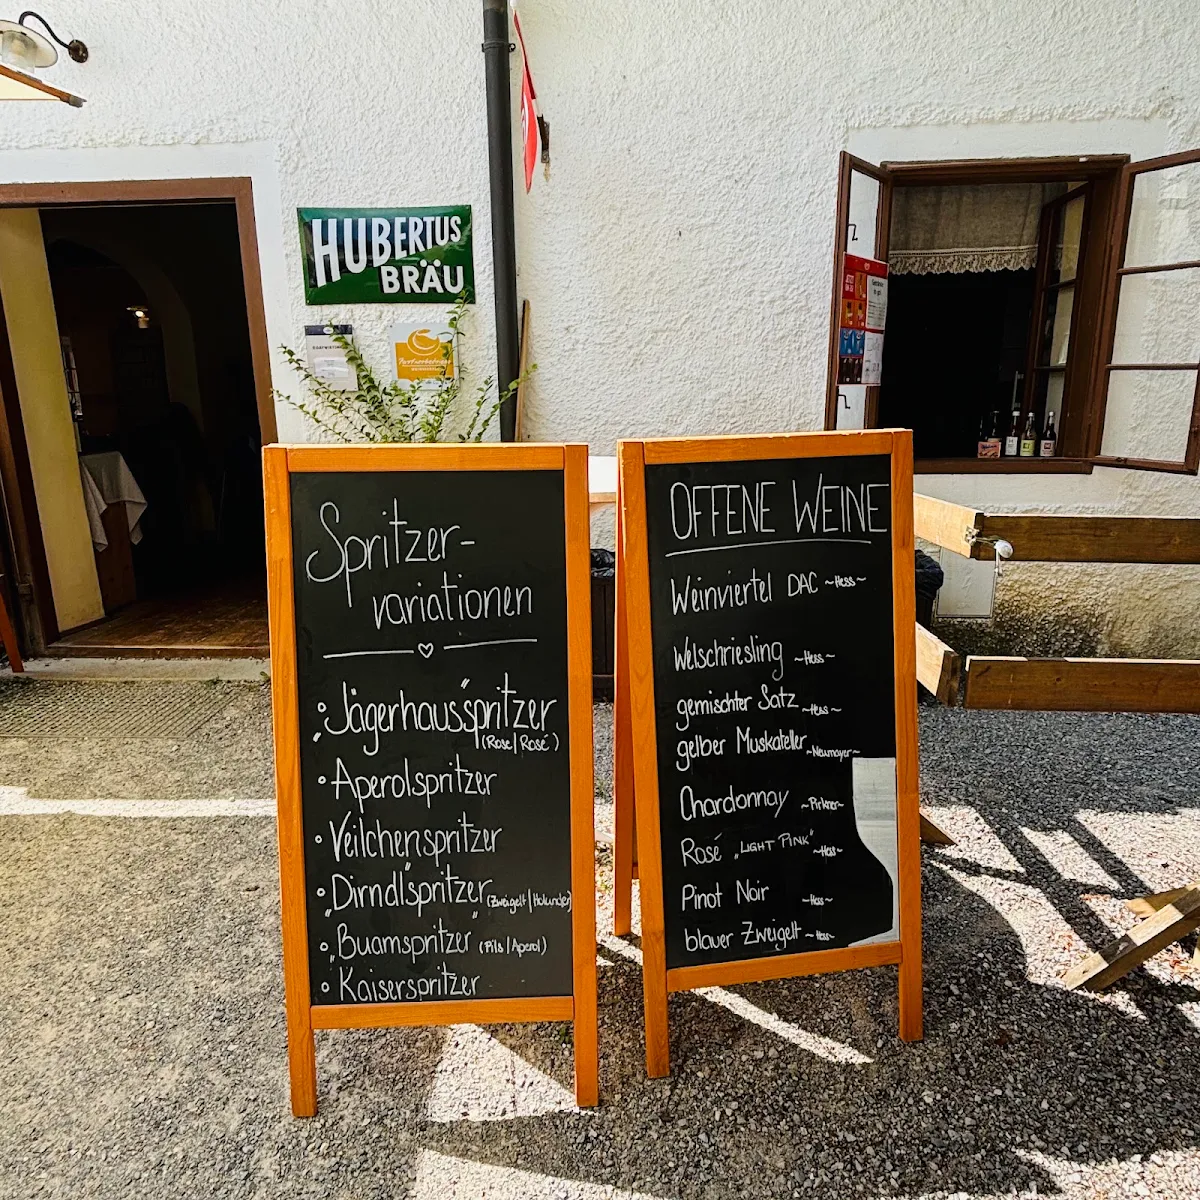 HUBERTUS
BRÄU
Partnerbetrieb
Spritzer-
variationen
„Jägerhausspritzer“
(Rose/Rosé)
Aperolspritzer
Veilchenspritzer
„Dirndlspritzer“ (Zweigelt/Holunder)
„Buamspritzer“ (Pils/Aperol)
Kaiserspritzer
OFFENE WEINE
Weinviertel DAC ~Hess~
Welschriesling ~Hess~
gemischter Satz ~Hess~
gelber Muskateller ~Neumayer~
Chardonnay ~Pirkner~
Rosé „LIGHT PINK“ ~Hess~
Pinot Noir ~Hess~
blauer Zweigelt ~Hess~